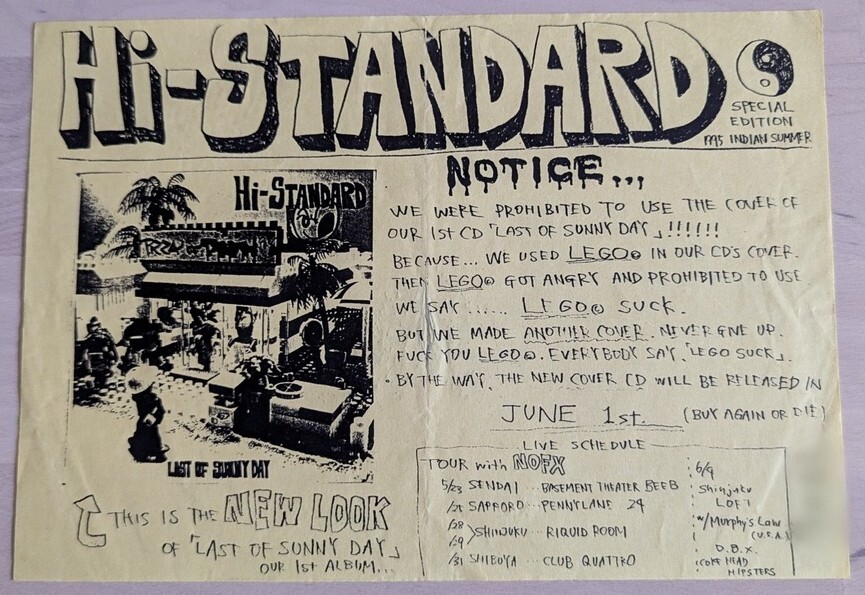 Hi-STANDARD
SPECIAL
EDITION
1995 INDIAN SUMMER
NOTICE...
WE WERE PROHIBITED TO USE THE COVER OF
OUR 1ST CD 「LAST OF SUNNY DAY」!!!!!!
BECAUSE... WE USED LEGO® IN OUR CD'S COVER.
THEN LEGO® GOT ANGRY AND PROHIBITED TO USE
WE SAY ...... LEGO® SUCK.
BUT WE MADE ANOTHER COVER. NEVER GIVE UP.
FUCK YOU LEGO®. EVERYBODY SAY 「LEGO SUCK」.
・BY THE WAY, THE NEW COVER CD WILL BE RELEASED IN
JUNE 1st. (BUY AGAIN OR DIE)
Hi-STANDARD
LAST OF SUNNY DAY
THIS IS THE NEW LOOK
OF 「LAST OF SUNNY DAY」
OUR 1st ALBUM...
LIVE SCHEDULE
TOUR with NOFX
5/23 SENDAI ... BASEMENT THEATER BEEB
SAPPORO ... PENNYLANE 24
/28
/29 SHINJUKU ... RIQUID ROOM
/31 SHIBUYA ... CLUB QUATTRO
6/9
Shinjuku
LOFT
w/Murphy's Law
(U.S.A)
D.B.X.
COKEHEAD
HIPSTERS